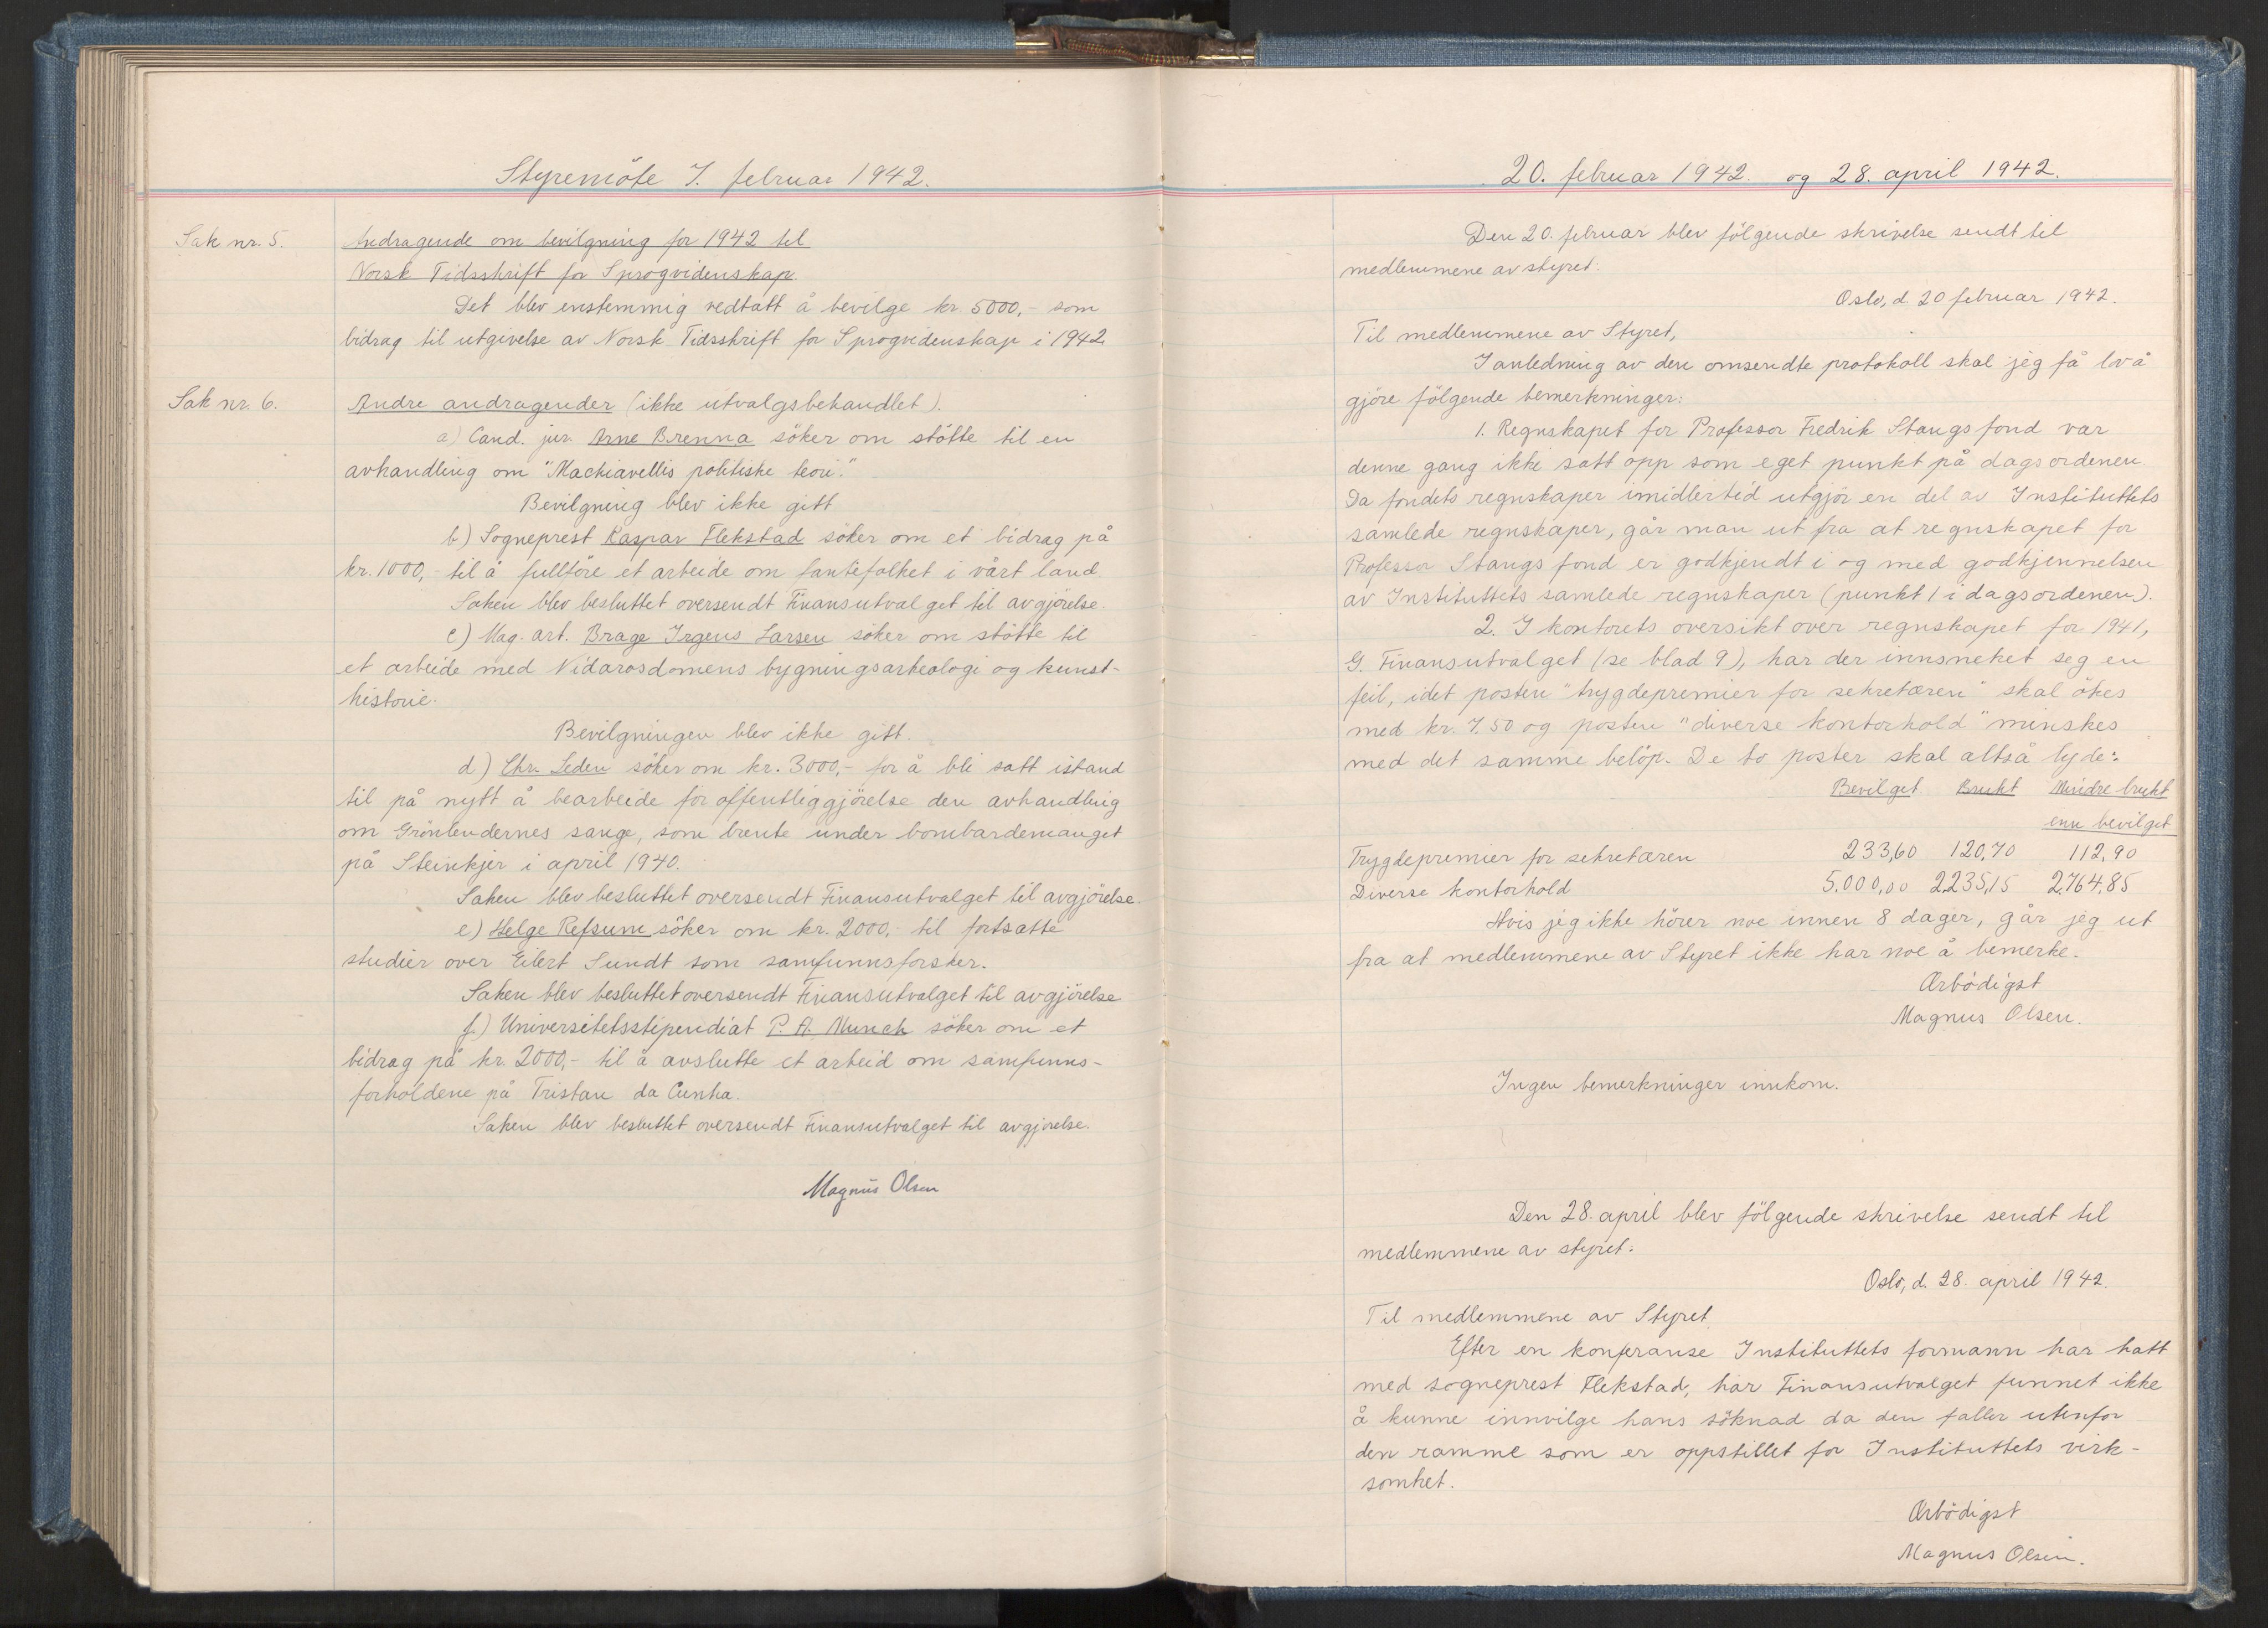 Styremöte 7. februar 1942.
Sak nr. 5.
Andragende om bevilgning for 1942 til
Norsk Tidsskrift for Sprogvidenskap.
Det blev enstemmig vedtatt å bevilge kr. 5000,- som
bidrag til utgivelse av Norsk Tidsskrift for Sprogvidenskap i 1942
Sak nr. 6.
Andre andragender (ikke utvalgsbehandlet).
a) Cand. jur. Arne Brenna söker om stötte til en
avhandling om "Machiavellis politiske teori".
Bevilgning blev ikke gitt
b) Sogneprest Kaspar Flekstad söker om et bidrag på
kr. 1000,- til å fullföre et arbeide om fantefolket i vårt land.
Saken blev besluttet oversendt Finansutvalget til avgjörelse.
c) Mag. art. Brage Irgens Larsen söker om stötte til
et arbeide med Nidarosdomens bygningsarkeologi og kunst-
historie.
Bevilgningen blev ikke gitt.
d) Chr. Leden söker om kr. 3000,- for å bli satt istand
til på nytt å bearbeide for offentliggjörelse den avhandling
om Grönlendernes sange, som brente under bombardemanget
på Steinkjer i april 1940.
Saken blev besluttet oversendt Finansutvalget til avgjörelse.
e) Helge Refsum söker om kr. 2000,- til fortsatte
studier over Eilert Sundt som samfunnsforsker.
Saken blev besluttet oversendt Finansutvalget til avgjörelse
f.) Universitetsstipendiat P. A. Munch söker om et
bidrag på kr. 2000,- til å avslutte et arbeid om samfunns-
forholdene på Tristan da Cunha.
Saken blev besluttet oversendt Finansutvalget til avgjörelse.
Magnus Olsen
20. februar 1942. og 28. april 1942.
Den 20. februar blev fölgende skrivelse sendt til
medlemmene av styret:
Oslo, d. 20 februar 1942.
Til medlemmene av Styret,
I anledning av den omsendte protokoll skal jeg få lov å
gjöre fölgende bemerkninger:
1. Regnskapet for Professor Fredrik Stangs fond var
denne gang ikke satt opp som eget punkt på dagsordenen.
Da fondets regnskaper imidlertid utgjör en del av Instituttets
samlede regnskaper, går man ut fra at regnskapet for
Professor Stangs fond er godkjendt i og med godkjennelsen
av Instituttets samlede regnskaper (punkt 1 i dagsordenen).
2. I kontorets oversikt over regnskapet for 1941,
G. Finansutvalget (se blad 9), har der innsneket seg en
feil, idet posten "trygdepremier for sekretæren" skal ökes
med kr. 7.50 og posten "diverse kontorhold" minskes
med det samme belöp. De to poster skal altså lyde:
Bevilget Brukt Mindre brukt
enn bevilget
Trygdepremier for sekretæren 233,60 120,70 112,90
Diverse kontorhold 5.000,00 2.235,15 2.764,85
Hvis jeg ikke hörer noe innen 8 dager, går jeg ut
fra at medlemmene av Styret ikke har noe å bemerke.
Ærbödigst
Magnus Olsen.
Ingen bemerkninger innkom.
Den 28. april blev fölgende skrivelse sendt til
medlemmene av styret:
Oslo, d. 28. april 1942.
Til medlemmene av Styret.
Efter en konferanse Instituttets formann har hatt
med sogneprest Flekstad, har Finansutvalget funnet ikke
å kunne innvilge hans söknad da den faller utenfor
den ramme som er oppstillet for Instituttets virk-
somhet.
Ærbödigst
Magnus Olsen.